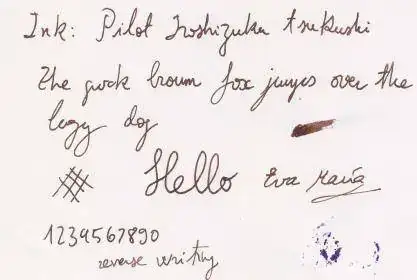 Ink: Pilot Iroshizuku tsukushi
The quick brown fox jumps over the
lazy dog
Hello Eva María
1234567890
reverse writing